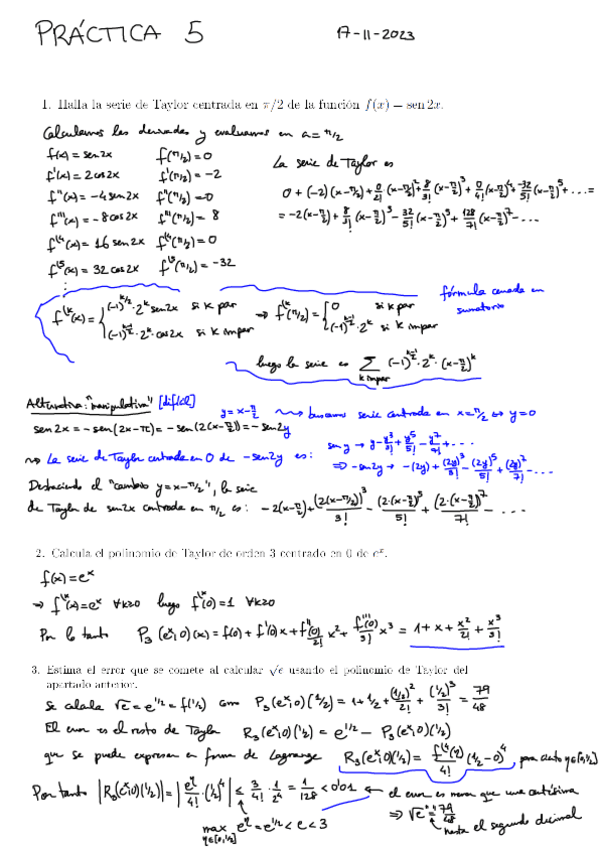 PRÁCTICA 5 17-11-2023
1. Halla la serie de Taylor centrada en π/2 de la función f(x) = sen 2x.
Calculamos las derivadas y evaluamos en a = π/2
f(x) = sen 2x f(π/2) = 0 La serie de Taylor es
f'(x) = 2 cos 2x f'(π/2) = -2
f''(x) = -4 sen 2x f''(π/2) = 0 0 + (-2)(x-π/2) + 0/2! (x-π/2)² + 8/3! (x-π/2)³ + 0/4! (x-π/2)⁴ + -32/5! (x-π/2)⁵ + ... =
f'''(x) = -8 cos 2x f'''(π/2) = 8 = -2(x-π/2) + 8/3! (x-π/2)³ - 32/5! (x-π/2)⁵ + 128/7! (x-π/2)⁷ - ...
f⁽⁴(x) = 16 sen 2x f⁽⁴(π/2) = 0
f⁽⁵(x) = 32 cos 2x f⁽⁵(π/2) = -32
⋮
fórmula cerrada en
sumatorio
f⁽ᵏ(x) = { (-1)^(k/2) · 2ᵏ sen 2x si k par ⇒ f⁽ᵏ(π/2) = { 0 si k par
(-1)^((k-1)/2) · 2ᵏ · cos 2x si k impar (-1)^((k+1)/2) · 2ᵏ si k impar
luego la serie es Σ k impar
Alternativa: "manipulativa" [difícil]
y = x-π/2 ⇝ buscamos serie centrada en x = π/2 ⇔ y = 0
sen 2x = -sen(2x-π) = -sen(2(x-π/2)) = -sen 2y
sen y → y - y³/3! + y⁵/5! - y⁷/7! + ...
⇝ La serie de Taylor centrada en 0 de -sen 2y es: ⇒ -sen 2y → -(2y) + (2y)³/3! - (2y)⁵/5! + (2y)⁷/7! - ...
Deshaciendo el "cambio y = x-π/2", la serie
de Taylor de sen 2x centrada en π/2 es: -2(x-π/2) + (2(x-π/2))³/3! - (2·(x-π/2))⁵/5! + (2·(x-π/2))⁷/7! - ...
2. Calcula el polinomio de Taylor de orden 3 centrado en 0 de eˣ.
f(x) = eˣ
⇒ f⁽ᵏ(x) = eˣ ∀k≥0 luego f⁽ᵏ(0) = 1 ∀k≥0
Por lo tanto P₃(eˣ;0)(x) = f(0) + f'(0)x + f''(0)/2! x² + f'''(0)/3! x³ = 1 + x + x²/2! + x³/3!
3. Estima el error que se comete al calcular √e usando el polinomio de Taylor del
apartado anterior.
Se calcula √e = e^(1/2) = f(1/2) como P₃(eˣ;0)(1/2) = 1 + 1/2 + (1/2)²/2! + (1/2)³/3! = 79/48
El error es el resto de Taylor R₃(eˣ;0)(1/2) = e^(1/2) - P₃(eˣ;0)(1/2)
que se puede expresar en forma de Lagrange R₃(eˣ;0)(1/2) = f⁽⁴(η)/4! (1/2-0)⁴ para cierto η∈[0,1/2]
Por tanto |R₃(eˣ;0)(1/2)| = |e^η/4! · (1/2)⁴| ≤ 3/4! · 1/2⁴ = 1/128 < 0'01 ← el error es menor que una centésima
max η∈[0,1/2] e^η = e^(1/2) < e < 3 ⇒ √e ≈ 79/48
hasta el segundo decimal